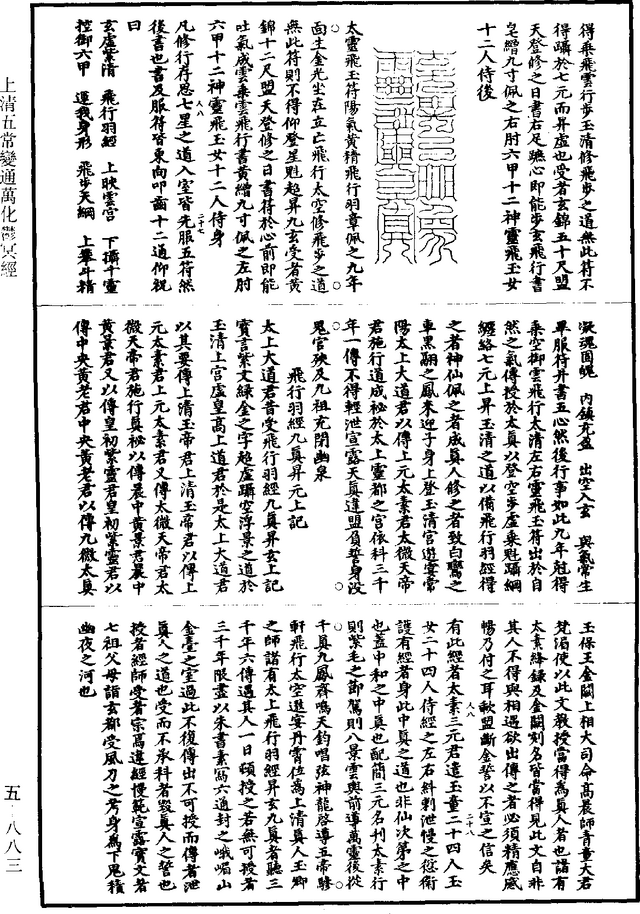 得乘飛雲行步玉清修飛步之道無此符不
得躡於七元而昇虛也受者玄錦五十尺盟
天登修之日書右足蹠心即能步玄飛行書
皂繒九寸佩之右肘六甲十二神靈飛玉女
十二人侍後
太靈飛玉符陽氣黃精飛行羽章佩之九年
面生金光坐在立亡飛行太空修飛步之道
無此符則不得仰登星魁超昇九玄受者黃
錦十二尺盟天登修之日書符於心前即能
吐氣成雲乘雲飛行書黃繒九寸佩之左肘
六甲十二神靈飛玉女十二人侍身
八八 二十七
凡修行存思七星之道入室皆先服五符然
後書也書及服符皆東向叩齒十二通仰祝
曰
玄虛紫清 飛行羽經 上映雲宮 下攝十靈
控御六甲 運我身形 飛步天綱 上攀斗精
凝魂固魄 內鎮充盈 出空入玄 與氣常生
畢服符并書五心然後行事如此九年尅得
乘空御雲飛行太清左右靈飛玉符出於自
然之氣傳授於太真以登空步虛乘魁躡綱
纏絡七元上昇玉清之道以備飛行羽經得
之者神仙佩之者成真人修之者致白鸞之
車黑翮之鳳來迎子身上登玉清宮遊宴常
陽太上大道君以傳上元太素君太微天帝
君施行道成祕於太上靈都之宮依科三千
年一傳不得輕泄宣露天真違盟負誓身沒
鬼官殃及九祖充閉幽泉
飛行羽經九真昇元上記
太上大道君昔受飛行羽經九真昇玄上記
寶言紫文綠金之字超虛躡空浮景之道於
玉清上宮虛皇高上道君於是太上大道君
以其要傳上清玉帝君上清玉帝君以傳上
元太素君上元太素君又傳太微天帝君太
微天帝君施行真祕以傳晨中黃景君晨中
黃景君又以傳皇初紫靈君皇初紫靈君以
傳中央黃老君中央黃老君以傳九微太真
玉保王金闕上相大司命高晨師青童大君
梵湯使以此文教授當得為真人者也諸有
太素絳錄及金闕刻名皆當得見此文自非
其人不得與相遇欲出傳之者必須精應感
暢乃付之耳歃盟斷金誓以不宣之信矣
八八 二十八
有此經者太素三元君遣玉童二十四人玉
女二十四人侍經之左右糾剝泄慢之愆衛
護有經者身此中真之道也非仙次第之中
也蓋中和之中真也配簡三元名刊太素行
則紫毛之節駕則八景雲輿前導萬靈後從
千真九鳳齊鳴天鈞唱弦神龍啓導五帝驂
軒飛行太空遊宴丹霄位為上清真人玉卿
之師諸有太上飛行羽經昇玄九真者聽三
千年六傳遇其人一日頓授之若無可授者
三千年限盡以朱書素寫六通封之峨嵋山
金臺之室過此不復傳出不可授而傳者泄
真人之道也受而不承科者毀真人之誓也
授者經師受者宗焉違經慢範宣露寶文者
七祖父母詣玄都受風刀之考身為下鬼積
幽夜之河也
上清五常變通萬化鬱冥經
五 八八三